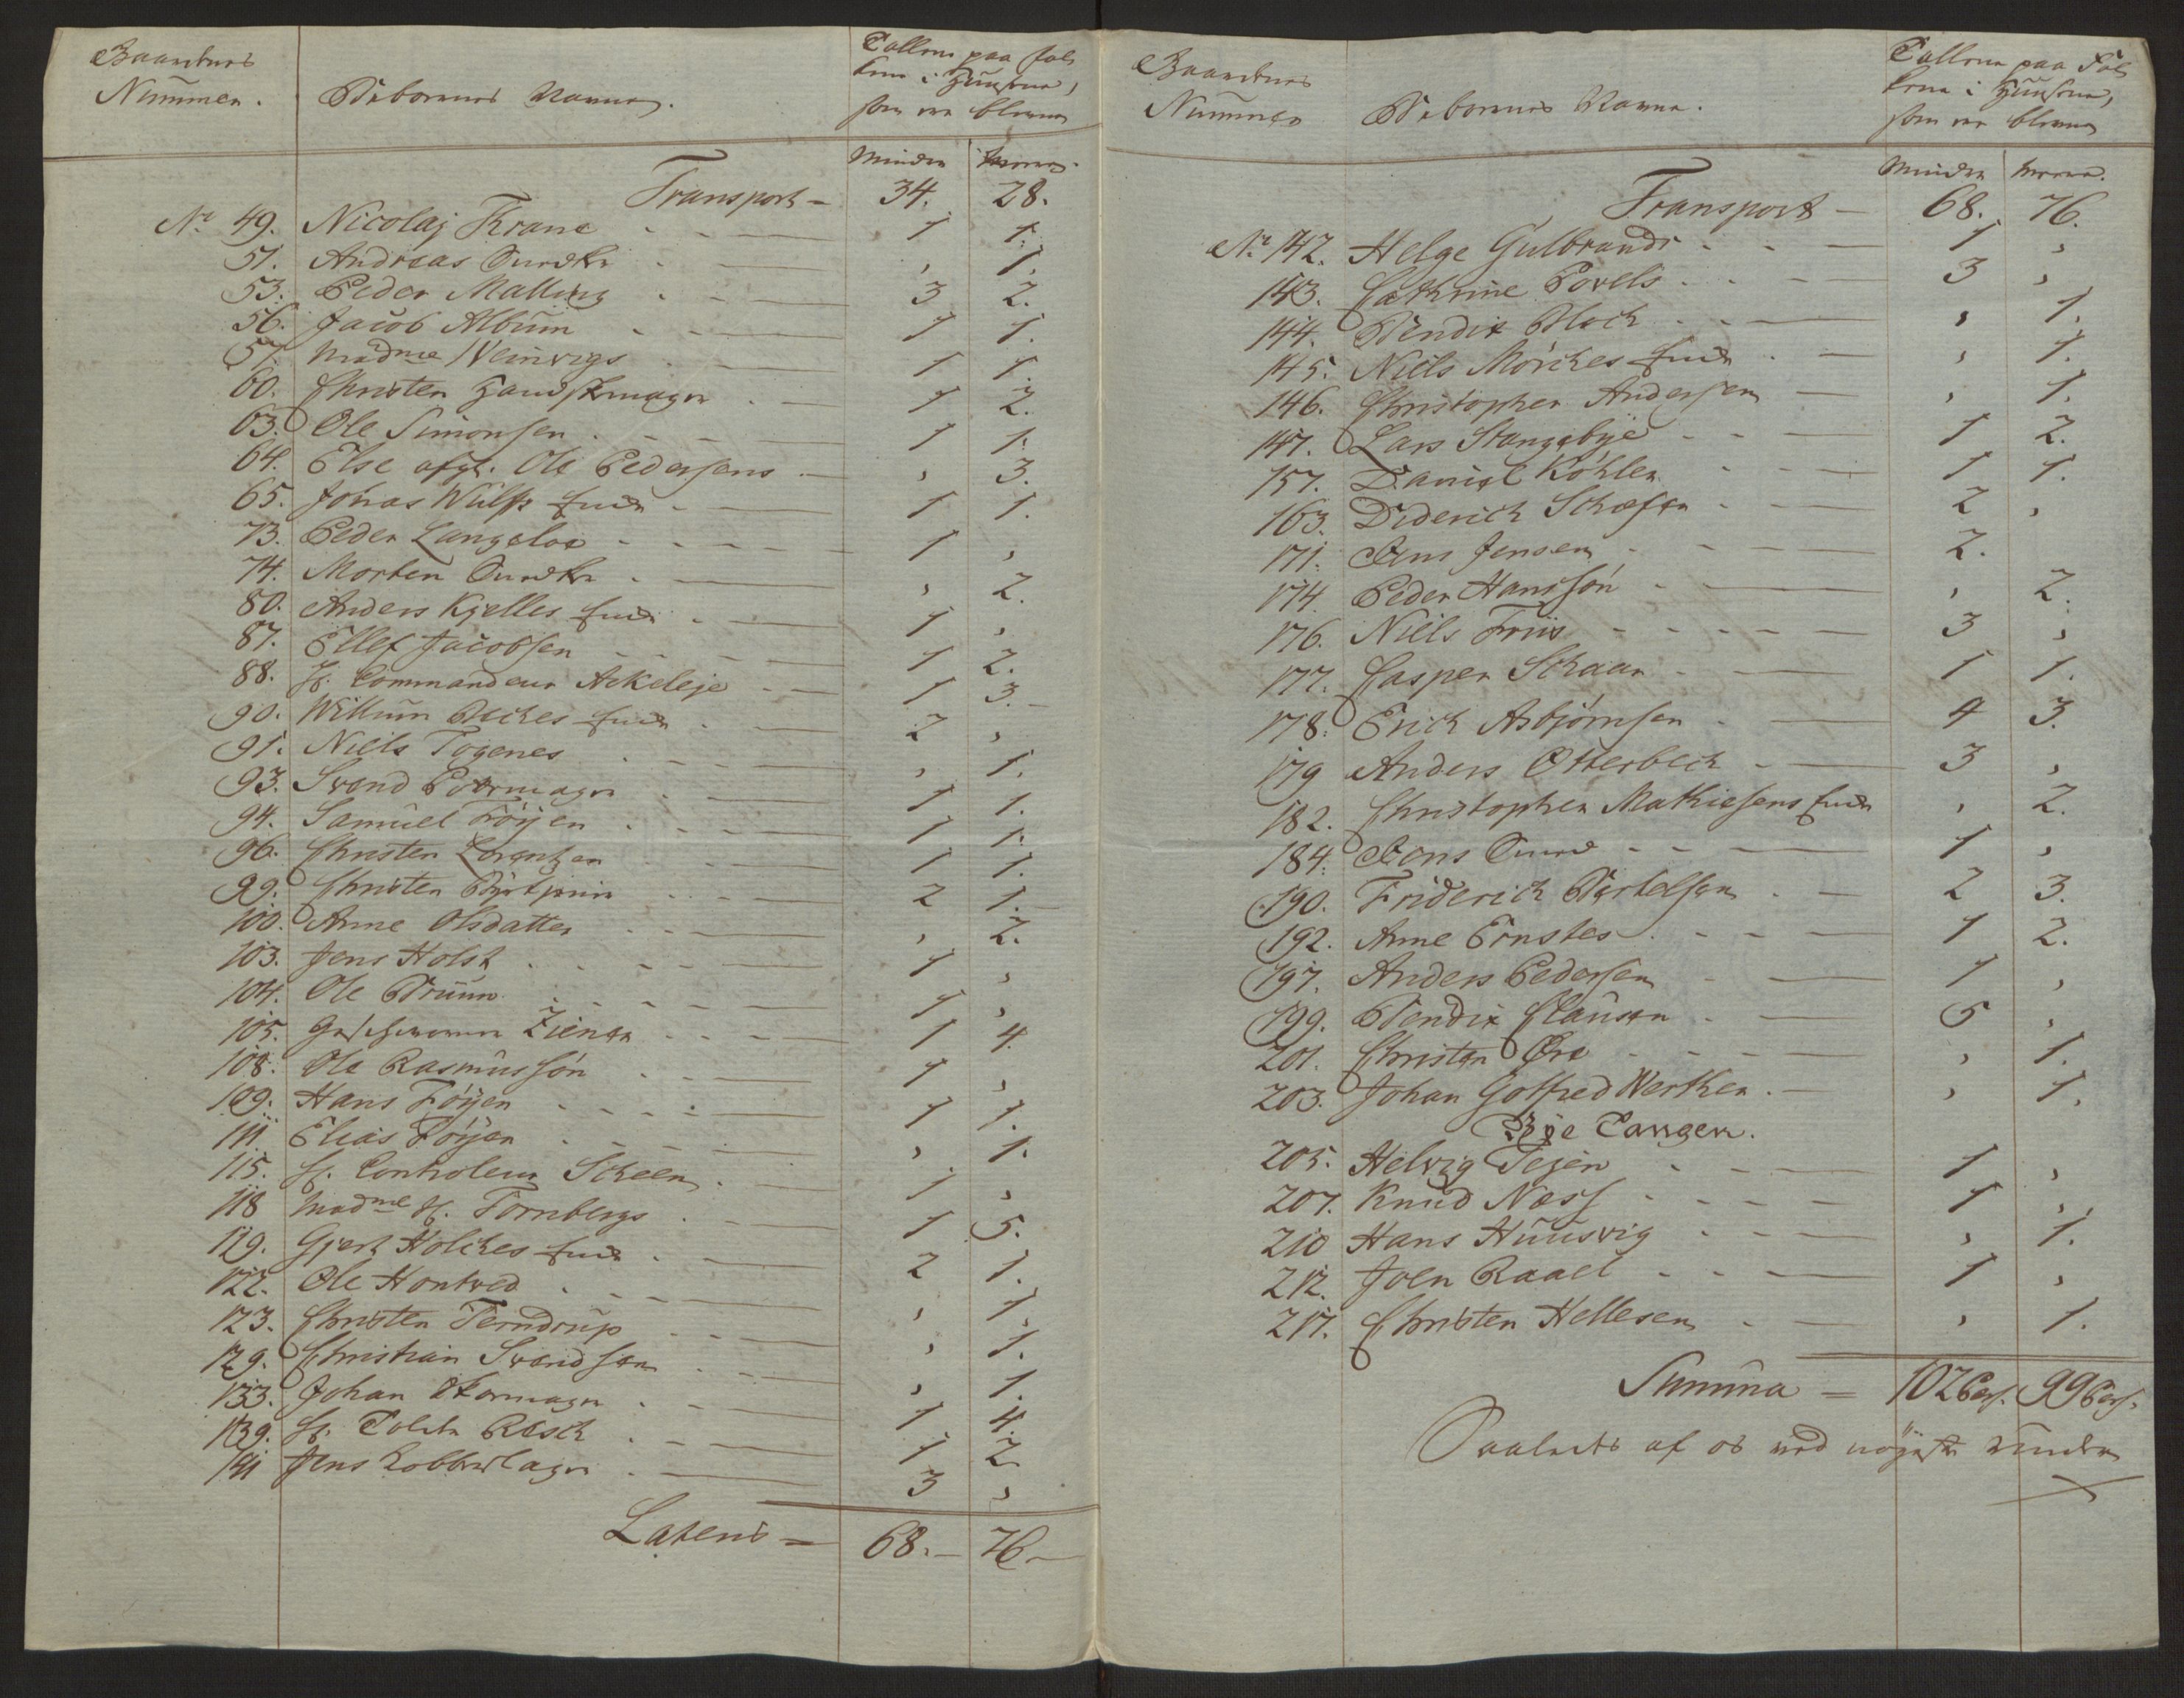 Gaardenes
Nummer.
Beboernes Navne.
Tallene paa Fol-
kene i Huusene,
som ere blevne
Mindre
meere.
Transport = 34. 28.
No 49. Nicolaj Krane 1 1.
51. Andreas Sundbÿ , 1.
53. Peder Malling 3 2.
56. Jacob Album 1 1.
57. Madme Weinvigs 1 1.
60. Christen Handskemager 1 2.
63. Ole Simonsen 1 1.
64. Else afgl. Ole Pedersens , 3.
65. Jonas Wulfs Enke 1 1.
73. Peder Langeloe 1 ,
74. Morten , 2.
80. Anders Kjelles Enke 1 ,
87. Ellef Jacobsen 1 2.
88. Hr. Commandeur Ackeleje 1 3.
90. Willum Enke 2 ,
91. Niels Togenes , 1.
93. Svend Pottemager 1 1.
94. Samuel Föÿen 1 1.
96. Christen Lorentzen 1 1.
99. Christen 2 1.
100. Anne Olsdatter , 2.
103. Jens Holst 1 ,
104. Ole Bruun 1 ,
105. Zienen 1 4.
108. Ole Rasmussön 1 ,
109. Hans Föÿen 1 1.
111. Elias Föÿen , 1.
115. Hr. Controleur Scheen 1 ,
118 Madme Hr. Tornbergs 1 5.
119. Gjert Holckes Enke 2 1.
122. Ole Hontved , 1.
123. Christen Terndrup , 1.
129. Christian Svendsen , 1.
133. Johan 1 4.
139. Hr. Tolder Rosch 1 2.
141 Jens Kobberslager 3 ,
Lateris = 68. 76
Gaardenes
Nummer
Beboernes Navne.
Tallene paa Fol-
kene i Huusene,
som ere blevne
Mindre meere.
Transport 68. 76.
No 142. Helge Gulbrands 1 ,
143. Cathrine Povels 3 ,
144. Bendix Bloch , 1.
145. Niels Mörches Enke , 1.
146. Christopher Andersen , 1.
147. Lars Stangebÿe 1 2.
157. Daniel Köhler 1 1.
163. Diderich Schæfer 2 ,
171. Jens Jensen 2.
174. Peder Hanssön , 2.
176. Niels Friis 3 ,
177. Casper Schaar 1 1.
178. Erich Asbjörnsen 4 3.
179 Anders Otterbech 3 ,
182. Christopher Mathiesens Enke , 2.
184. Jens 1 ,
190. Friderich Bertelsen 2 3.
192. Anne Ernstes 1 2.
197. Anders Pedersen 1 ,
199. Bendix Clausen 5 ,
201. Christen Öre , 1.
203. Johan Gotfred Werther , 1.
Bÿe Tangen.
205. Helvig Tejen 1 ,
207. Knud Næss 1 ,
210 Hans Huusvig , 1.
212. Joen Raael 1 ,
217. Christen Hellesen , 1.
Summa = 102 Pers. 99 Pers.
Saaledes af os med nöjeste